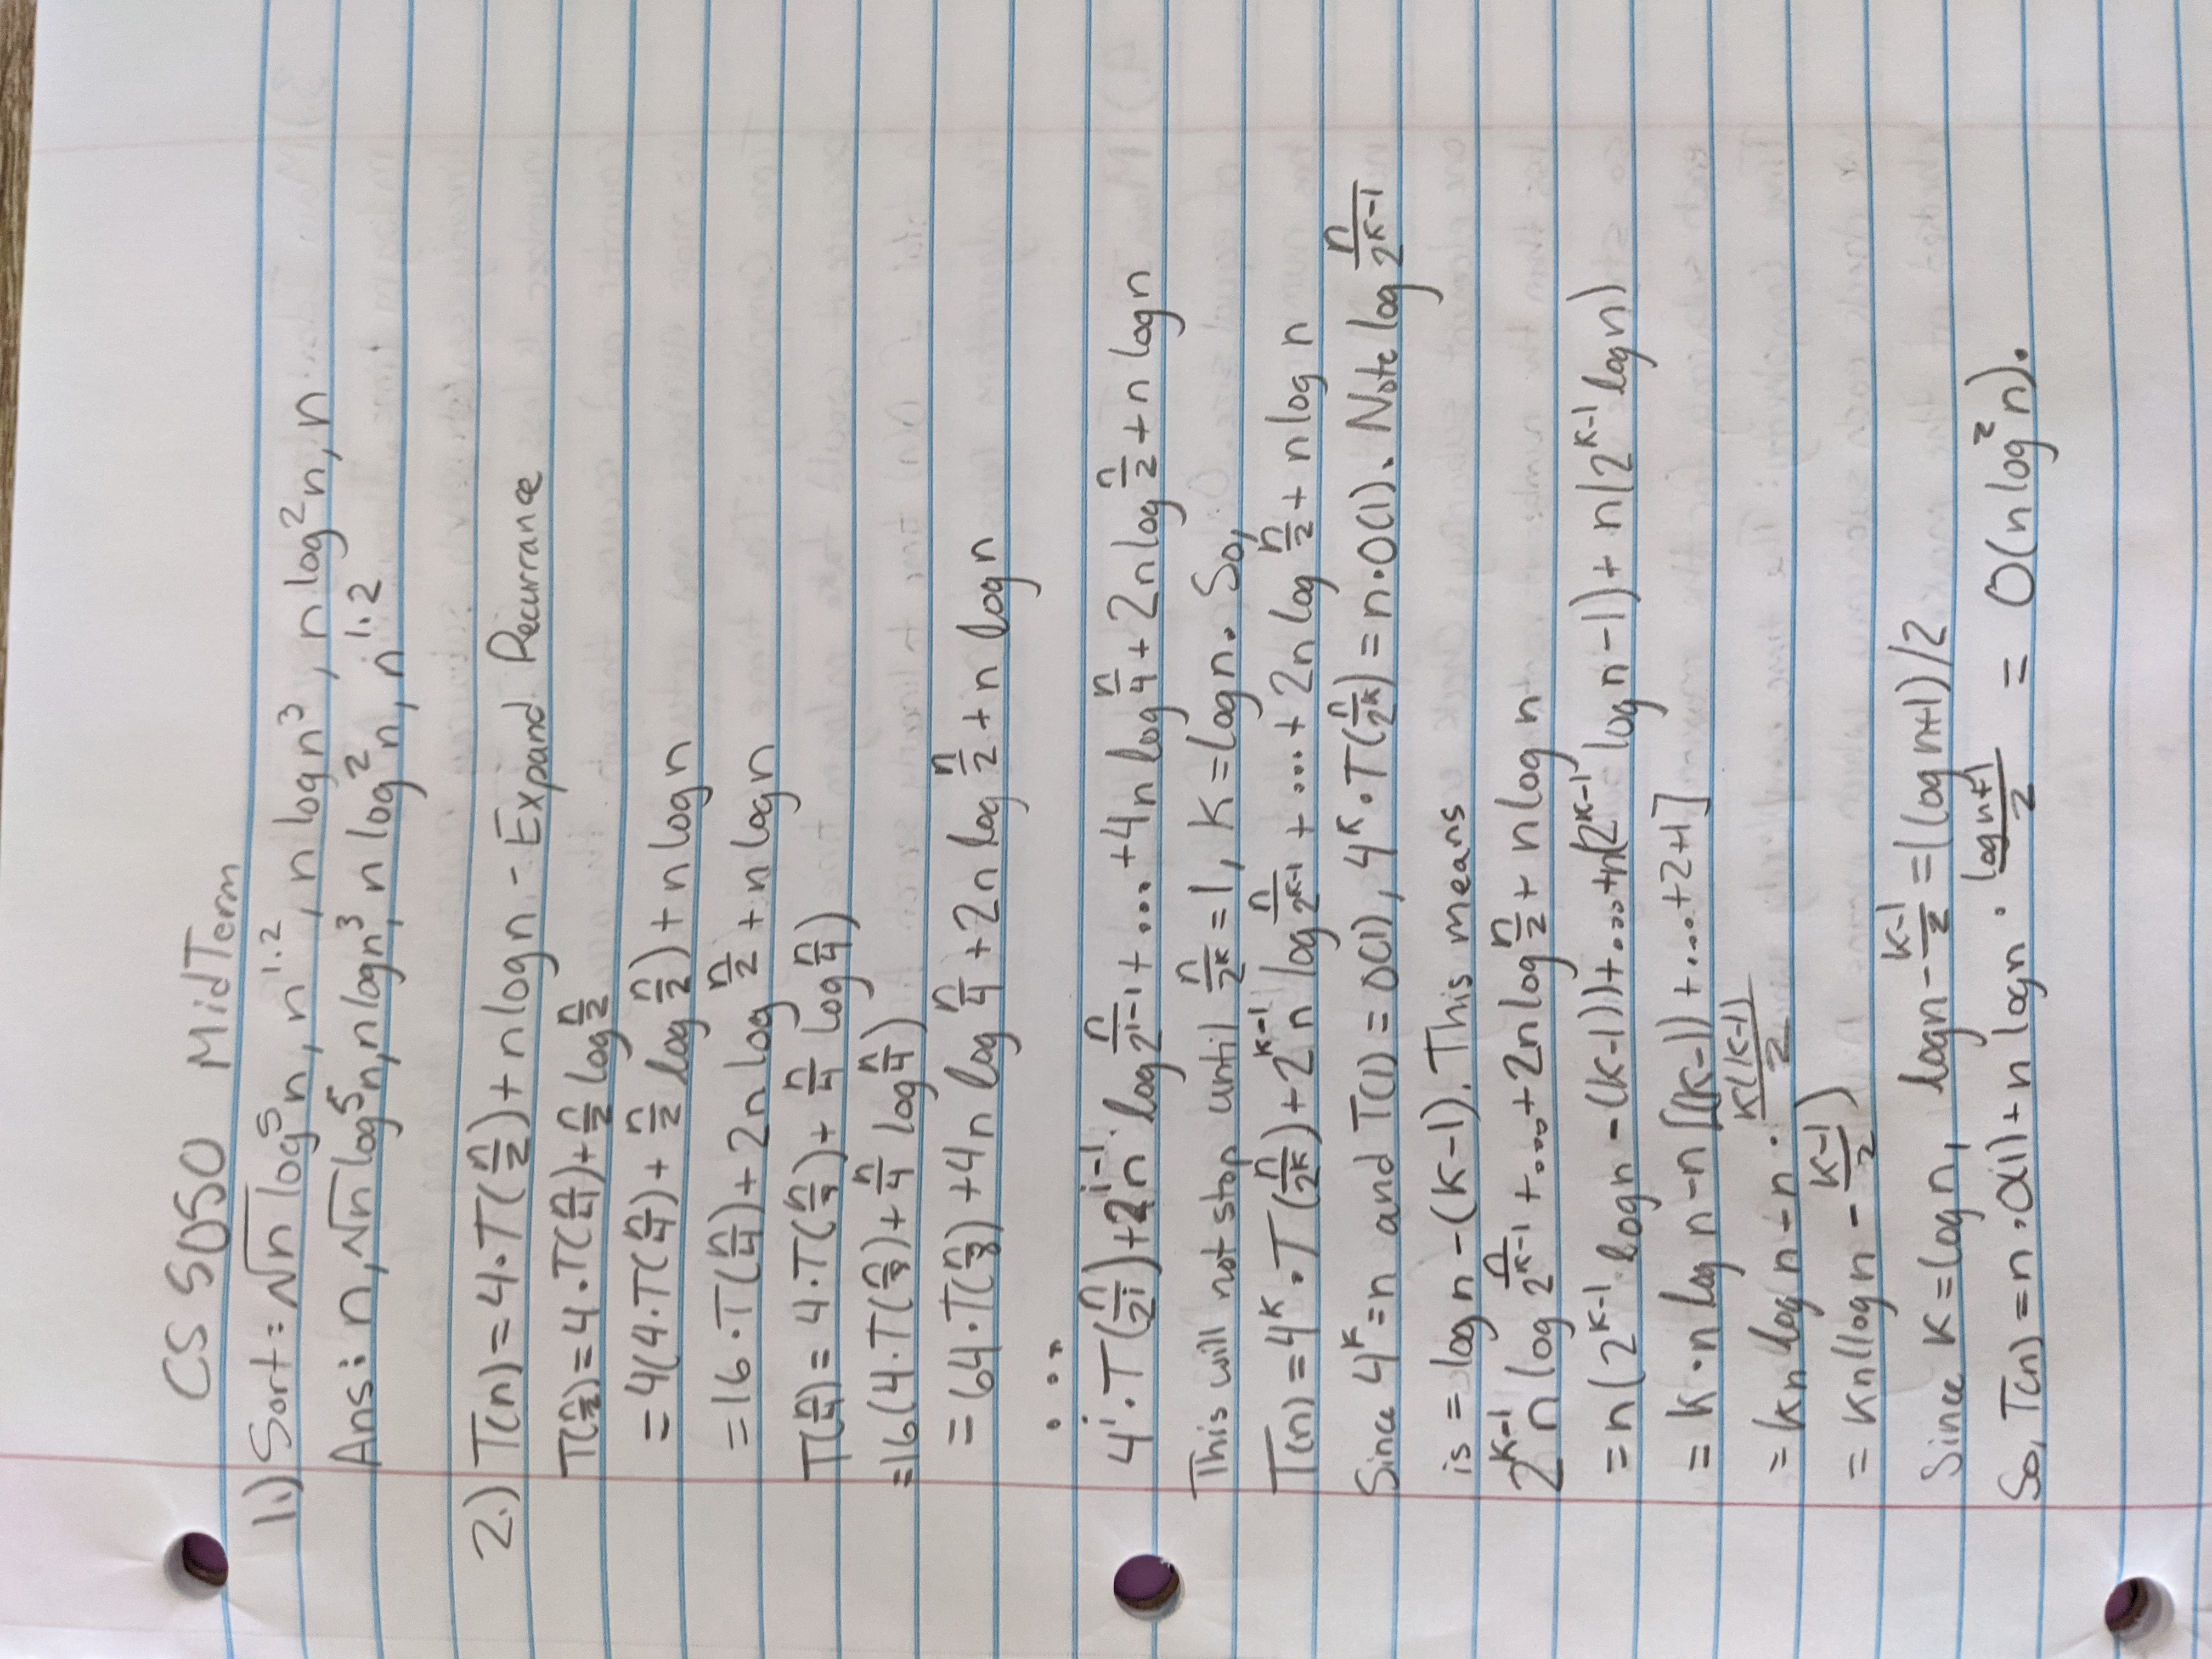 CS 5050 MidTerm
1.) Sort: √n log⁵n, n^1.2, n log n³, n log²n, n
Ans: n, √n log⁵n, n log n³, n log²n, n^1.2
2.) T(n) = 4·T(n/2) + n log n - Expand Recurrance
T(n/2) = 4·T(n/4) + n/2 log n/2
= 4(4·T(n/4) + n/2 log n/2) + n log n
= 16·T(n/4) + 2n log n/2 + n log n
T(n/4) = 4·T(n/8) + n/4 log n/4)
= 16(4·T(n/8) + n/4 log n/4)
= 64·T(n/8) + 4n log n/4 + 2n log n/2 + n log n
...
4^i·T(n/2^i) + 2^(i-1) n · log n/2^(i-1) + ... + 4n log n/4 + 2n log n/2 + n log n
This will not stop until n/2^k = 1, k = log n. So,
T(n) = 4^k·T(n/2^k) + 2^(k-1) n log n/2^(k-1) + ... + 2n log n/2 + n log n
Since 4^k = n and T(1) = O(1), 4^k·T(n/2^k) = n·O(1). Note log n/2^(k-1)
is = log n - (k-1). This means
2^(k-1) n log n/2^(k-1) + ... + 2n log n/2 + n log n
= n(2^(k-1) · log n - (k-1)) + ... + n(2^(k-1) log n - 1) + n(2^(k-1) log n)
= k·n log n - n[(k-1)) + ... + 2+1]
= kn log n - n · k(k-1)/2
= kn(log n - (k-1)/2)
Since k = log n, log n - (k-1)/2 = (log n+1)/2
So, T(n) = n·O(1) + n log n · (log n+1)/2 = O(n log²n).